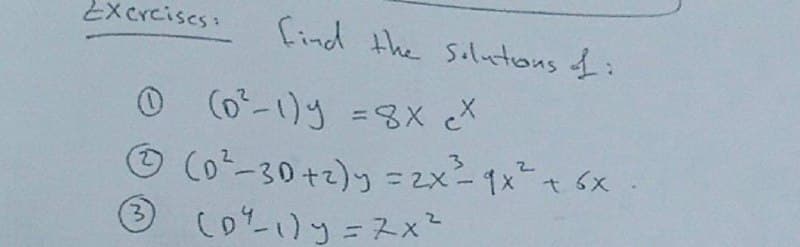 Exercises: find the solutions of:
① (D²-1)y = 8x eˣ
② (D²-3D+2)y = 2x³-9x²+6x.
③ (D⁴-1)y = 7x²